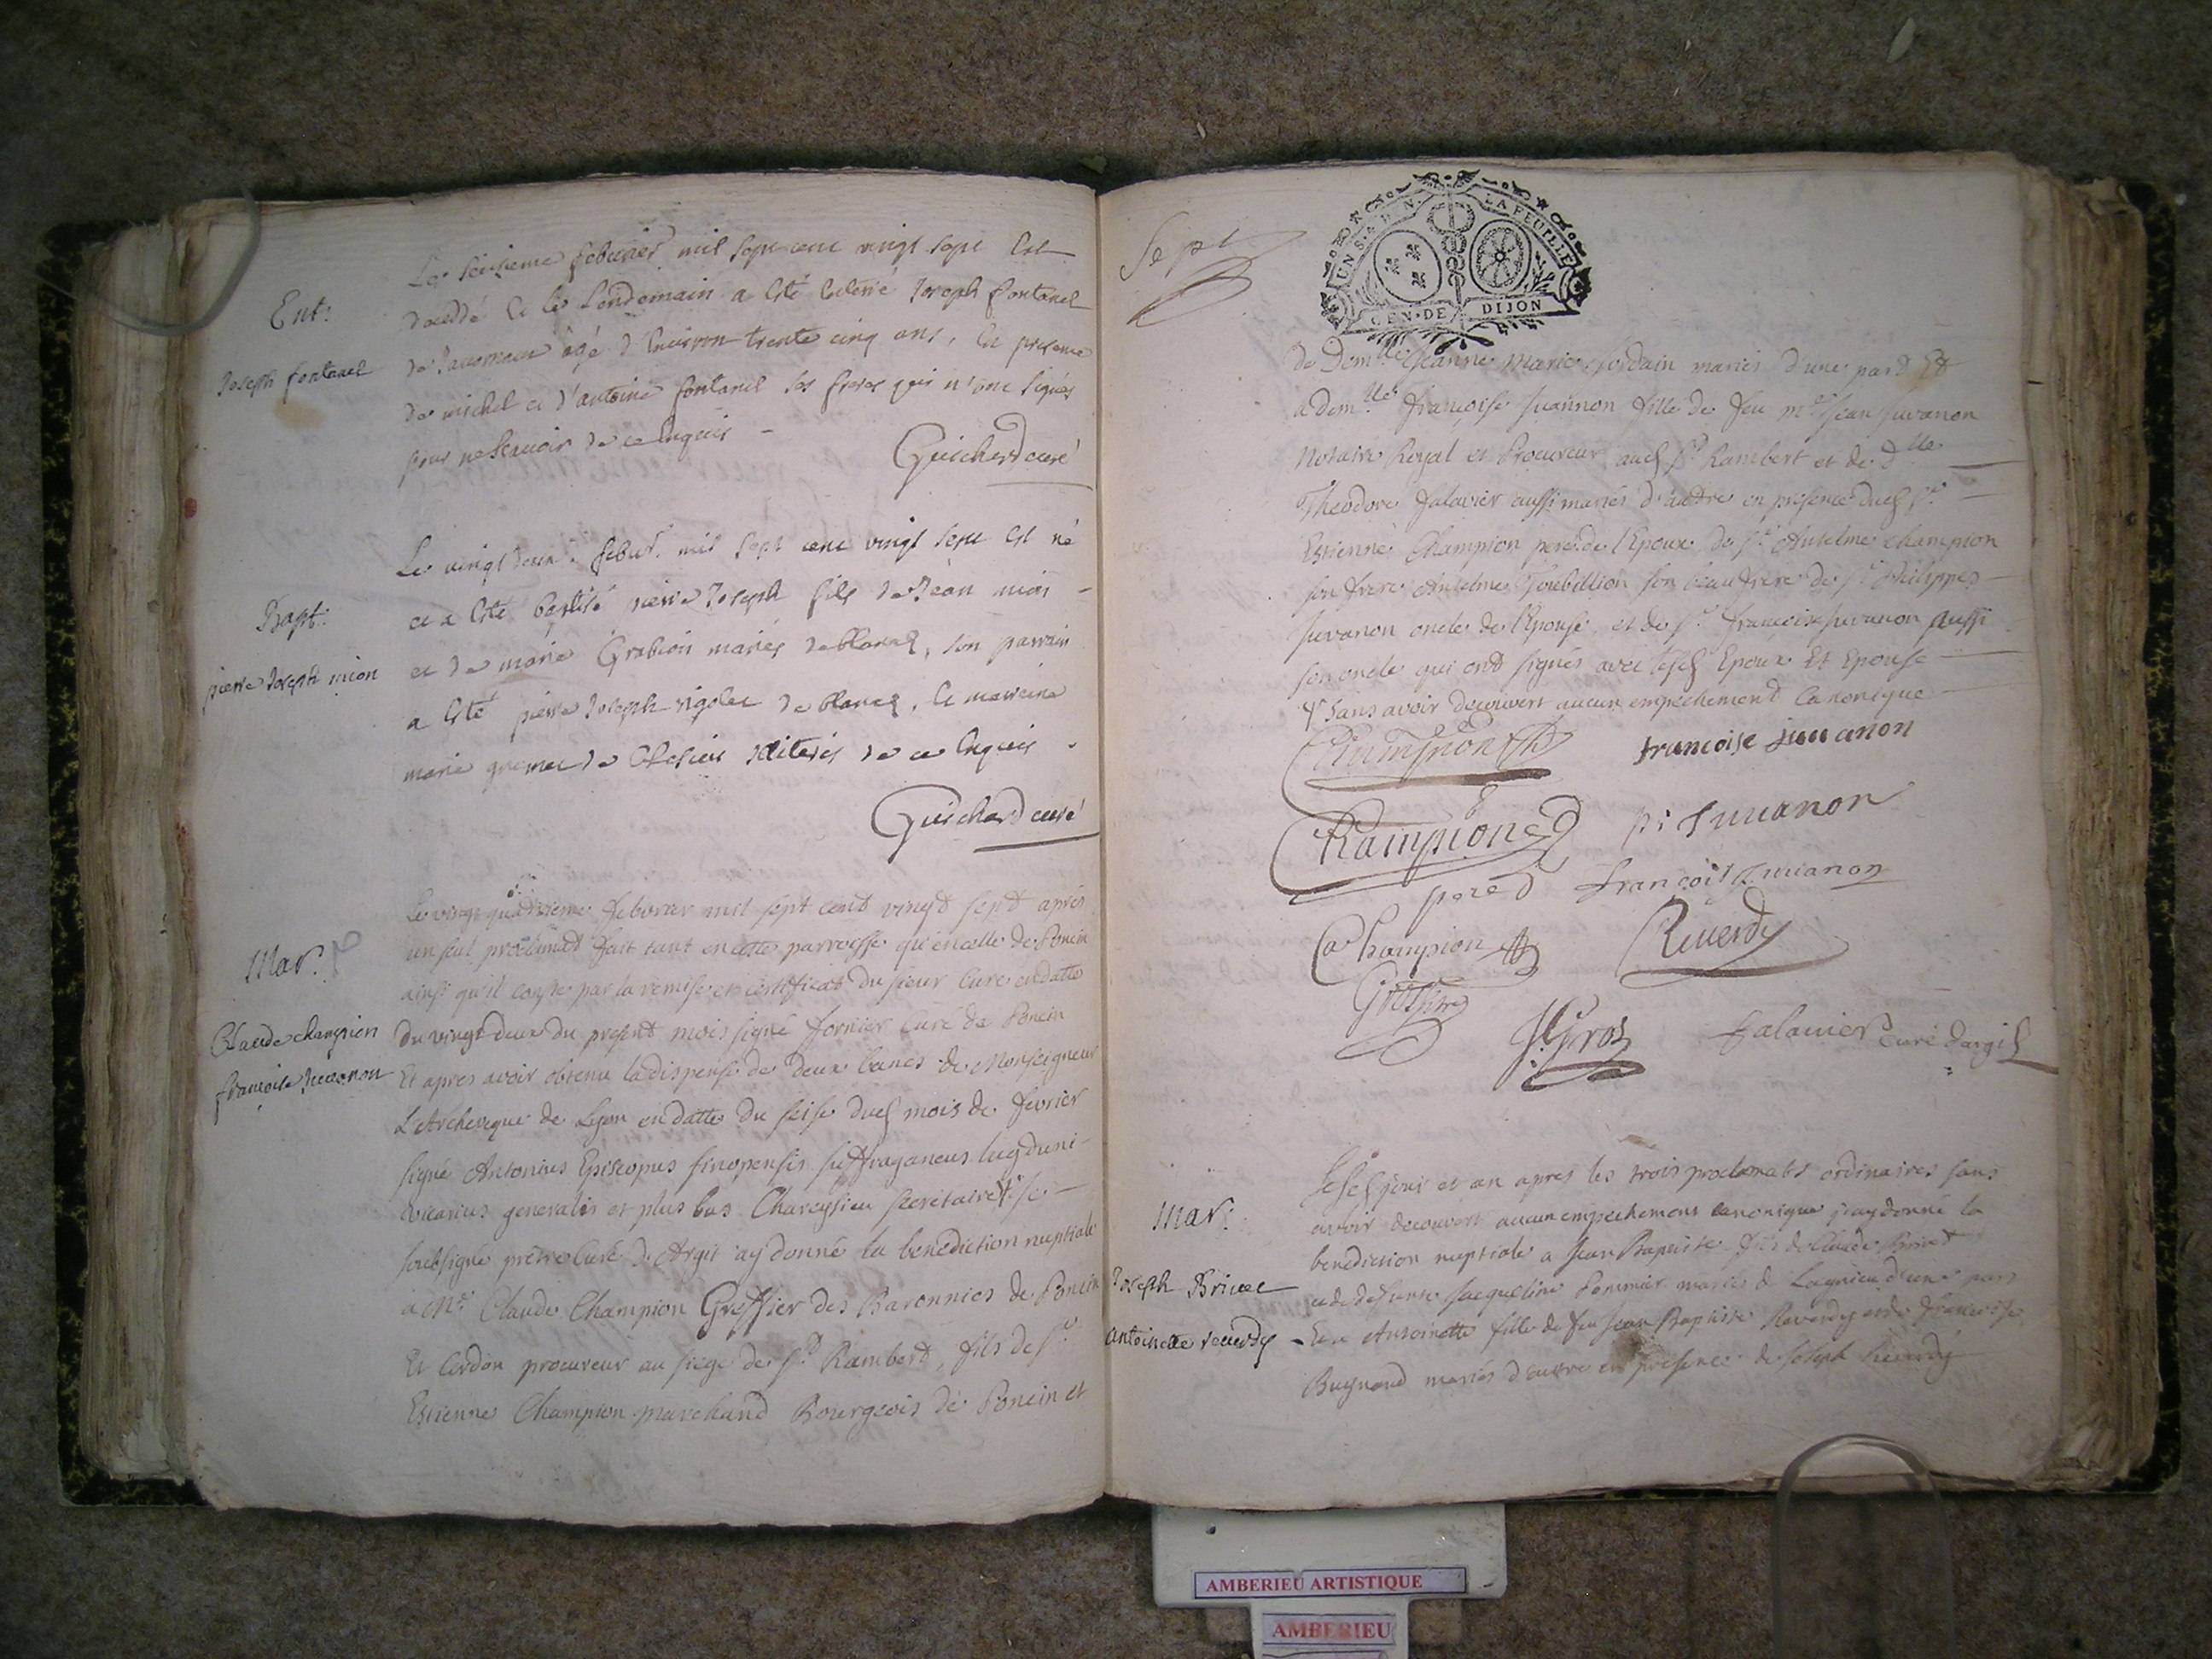 Ent:
Joseph fontanel
Le seizieme febvrier mil sept cent vingt sept est
decedé et le lendemain a esté enterré Joseph fontanel
de agé d'environ trente cinq ans, en presence
de michel et d'antoine fontanel ses freres qui n'ont signés
pour ne scavoir de ce enquis -
Guichard curé
Bapt:
pierre Joseph mion
Le vingt deux febur. mil sept cent vingt sept est né
et a esté baptisé pierre Joseph fils de Jean mion -
et de marie Grabion mariés de blanaz, son parrain
a esté pierre Joseph rigolet de blanaz, la marraine
marie de illiteres de ce enquis .
Guichard curé
Mar:
Claude champion
francoise Juvanon
Le vingt quatrieme febvrier mil sept cent vingt sept après
un seul proclamat fait tant en cette parroisse qu'en celle de Poncin
ainsi qu'il conste par la remise et certificat du sieur Curé en datte
du vingt deux du present mois signé fornier Curé de Poncin
Et apres avoir obtenu la dispense de deux bancs de Monseigneur
L'Archeveque de Lyon en datte du seise dud mois de fevrier
signé Antonius Episcopus sinopensis suffraganeus lugduni-
vicarius generalis et plus bas Charcysieu secretaire + je -
soubsigné prêtre Curé d'Argit ay donné la benediction nuptiale
a Me Claude Champion Greffier des Baronnies de Poncin
Et Cerdon procureur au siege de St Rambert, fils de Sr
Estienne Champion marchand Bourgeois de Poncin et
Sept
UN S. 4 D. N. LA FEUILLE
GEN. DE DIJON
de Demlle Jeanne Marie Jordain mariés d'une part Et
a demlle francoise Juvannon fille de feu me Jean Juvanon
Notaire Royal et Procureur aud St Rambert et de dlle
Theodore falavier aussi mariés d'autre en presence dud Sr
Estienne Champion pere de l'Epoux, de Sr Anselme champion
son frere Anselme Goubillion son beaufrere de Sr Philippes
Juvanon oncle de l'Epouse et de Sr francois Juvanon Aussi
son oncle qui ont signés avec lesd Epoux Et Epouse
+ sans avoir decouvert aucun empechement Canonique
Champion
francoise juuanon
Champion
pere
pi Juuanon
françois Juuanon
Champion
Reuerdy
J Gros
falauier Curé dargil
Mar:
Joseph Brivet
antoinette reuerdy
Lesd jour et an apres les trois proclamats ordinaires sans
avoir decouvert aucun empechement canonique j'ay donné la
benediction nuptiale a Jean Baptiste fils de Claude Brivet
et de defunte Jacqueline Pommier mariés de Lagnieu d'une part
Et a Antoinette fille de feu Jean Baptiste Reverdy et de francoise
Bugnand mariés d'autre en presence de Joseph Reverdy
AMBERIEU ARTISTIQUE
AMBERIEU